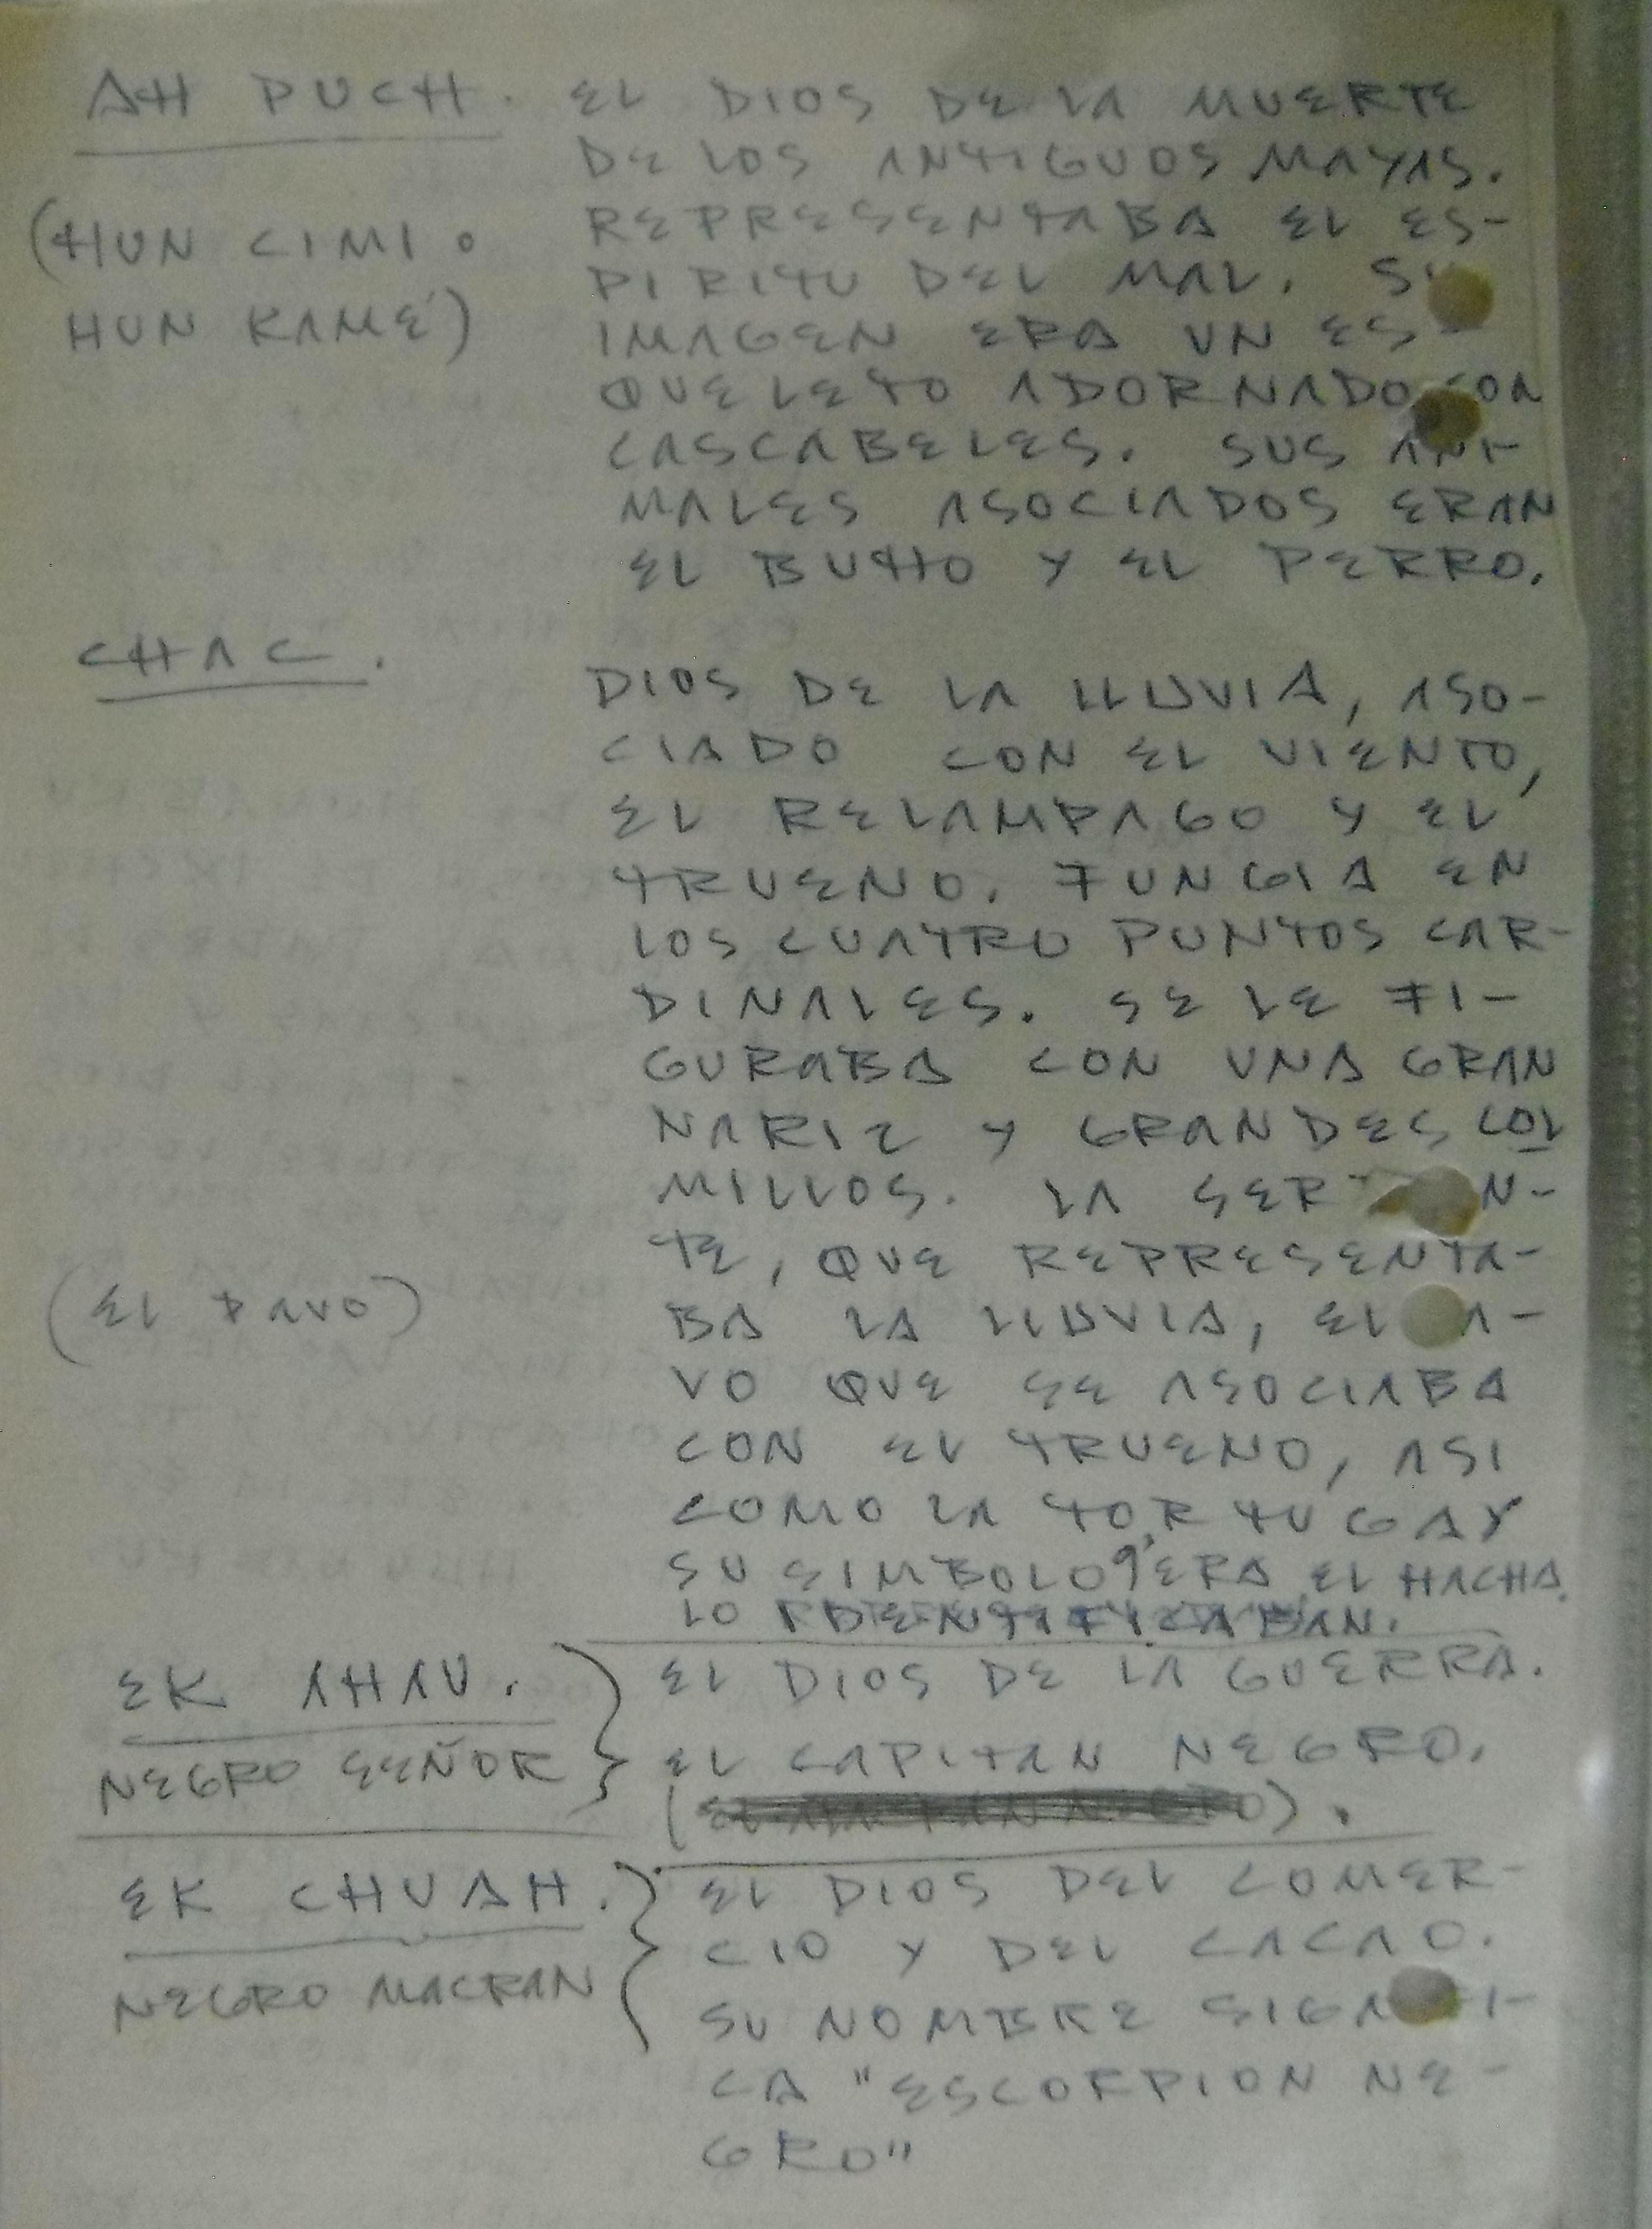 AH PUCH.
(HUN CIMI O
HUN KAMÉ)
EL DIOS DE LA MUERTE
DE LOS ANTIGUOS MAYAS.
REPRESENTABA EL ES-
PIRITU DEL MAL. SU
IMAGEN ERA UN ES-
QUELETO ADORNADO CON
CASCABELES. SUS ANI-
MALES ASOCIADOS ERAN
EL BUHO Y EL PERRO.
CHAC.
(EL PAVO)
DIOS DE LA LLUVIA, ASO-
CIADO CON EL VIENTO,
EL RELAMPAGO Y EL
TRUENO. FUNGIA EN
LOS CUATRO PUNTOS CAR-
DINALES. SE LE FI-
GURABA CON UNA GRAN
NARIZ Y GRANDES COL
MILLOS. LA SERPIEN-
TE, QUE REPRESENTA-
BA LA LLUVIA, EL PA-
VO QUE SE ASOCIABA
CON EL TRUENO, ASI
COMO LA TORTUGA Y
SU SIMBOLO ERA EL HACHA.
LO IDENTIFICABAN.
EK AHAU.
NEGRO SEÑOR
EL DIOS DE LA GUERRA.
EL CAPITAN NEGRO.
EK CHUAH.
NEGRO MACRAN
EL DIOS DEL COMER-
CIO Y DEL CACAO.
SU NOMBRE SIGNIFI-
CA "ESCORPION NE-
GRO"